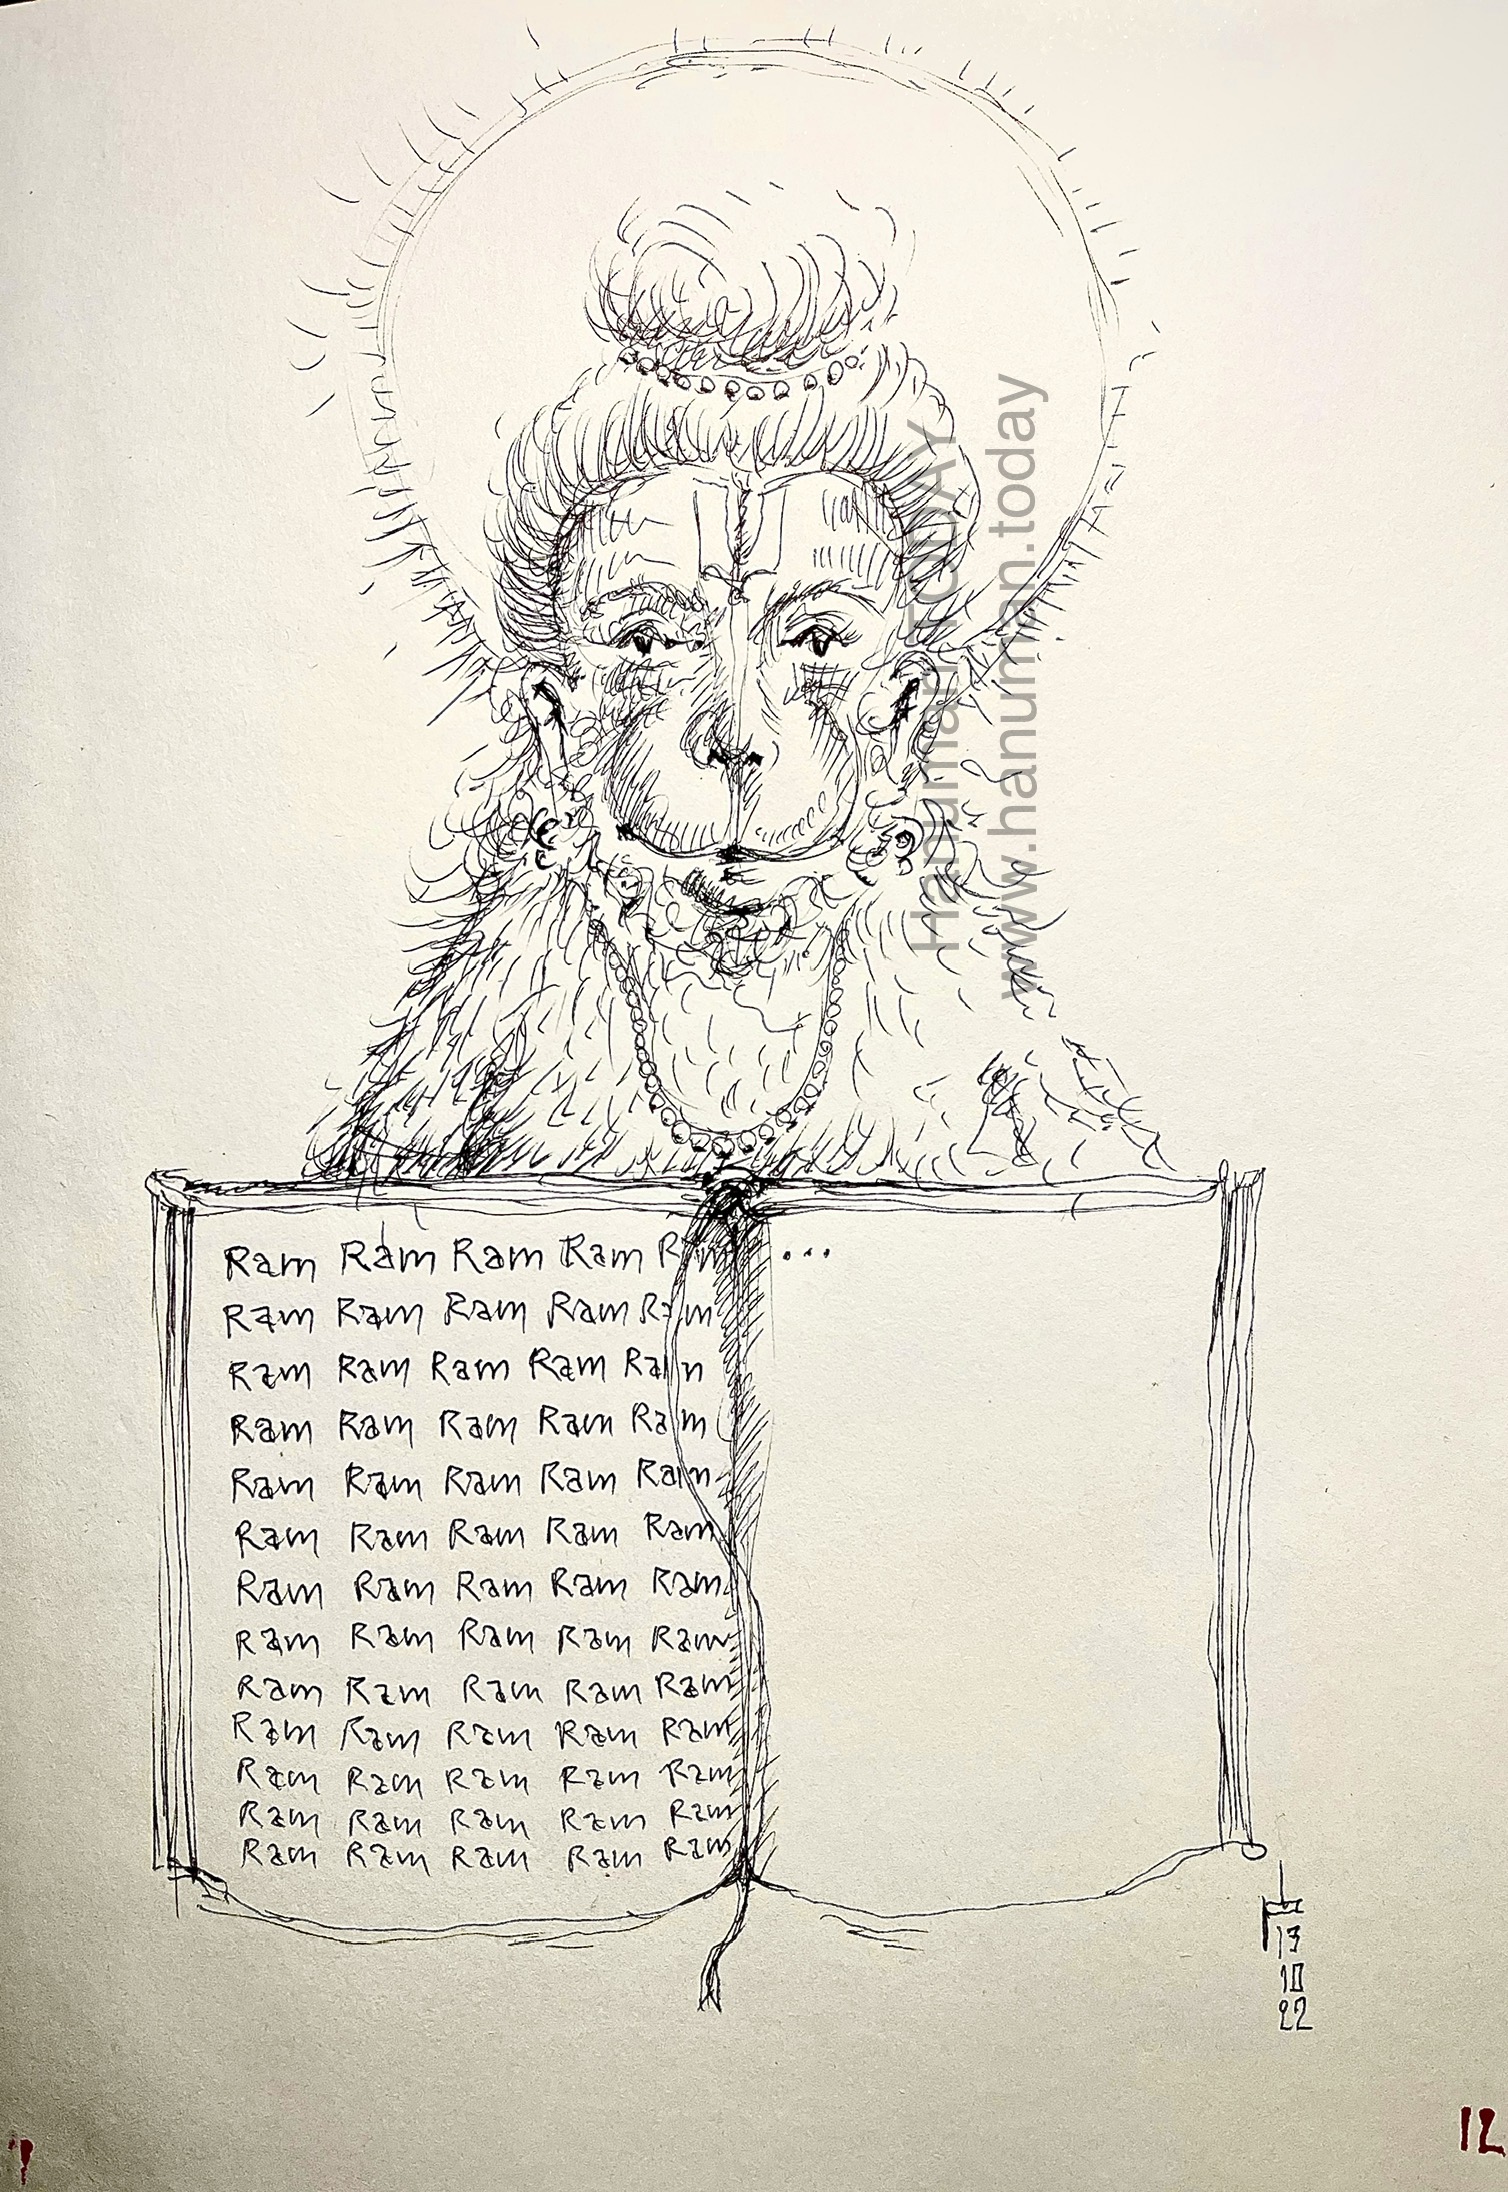 Hanuman TODAY
www.hanuman.today
Ram Ram Ram Ram Ram ...
Ram Ram Ram Ram Ram
Ram Ram Ram Ram Ram
Ram Ram Ram Ram Ram
Ram Ram Ram Ram Ram
Ram Ram Ram Ram Ram
Ram Ram Ram Ram Ram
Ram Ram Ram Ram Ram
Ram Ram Ram Ram Ram
Ram Ram Ram Ram Ram
Ram Ram Ram Ram Ram
Ram Ram Ram Ram Ram
Ram Ram Ram Ram Ram
13
10
22
12